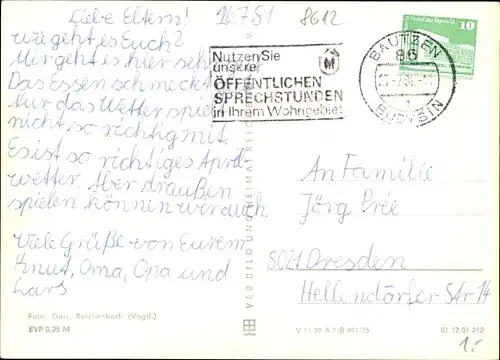 Liebe Eltern! 16.7.81 8612
wie geht es Euch?
Mir geht es hier sehr
Das Essen schmeckt
Nur das Wetter spielt
nicht so richtig mit.
Es ist so richtiges April-
wetter. Aber draußen
spielen können wir auch.
Viele Grüße von Eurem
Knut, Oma, Opa und
Lars
Nutzen Sie
unsere
ÖFFENTLICHEN
SPRECHSTUNDEN
in Ihrem Wohngebiet
BAUTZEN
86
BUDYŠIN
10
An Familie
Jörg Prée
8021 Dresden
Hellendorfer Str 14
VEB BILD UND HEIMAT REICHENBACH
Foto: Darr, Reichenbach (Vogtl.)
EVP 0,25 M
V 11 50 A 1/B 491/75
01 12 01 212
1,-